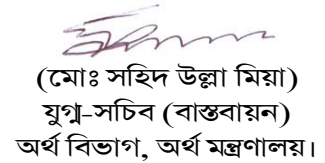 (মোঃ সহিদ উল্লা মিয়া)
যুগ্ম-সচিব (বাস্তবায়ন)
অর্থ বিভাগ, অর্থ মন্ত্রণালয়।